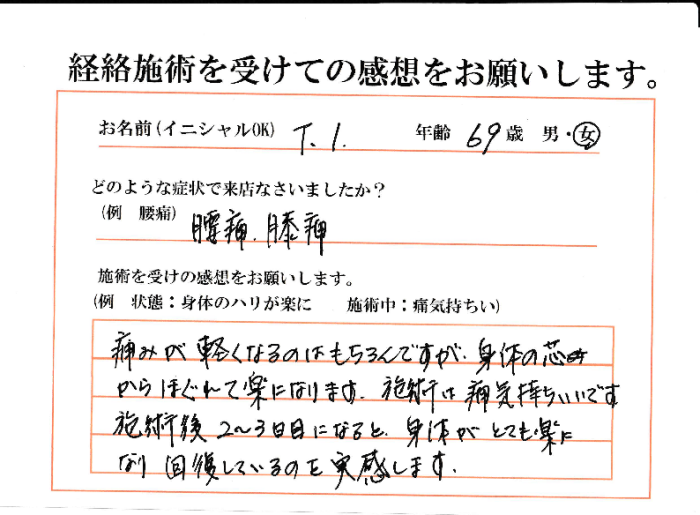 経絡施術を受けての感想をお願いします。
お名前(イニシャルOK) T. I. 年齢 69歳 男・女
どのような症状で来店なさいましたか？
(例 腰痛) 腰痛、膝痛
施術を受けの感想をお願いします。
(例 状態：身体のハリが楽に 施術中：痛気持ちい)
痛みが軽くなるのはもちろんですが、身体の芯
からほぐれて楽になります。施術は痛気持ちいいです
施術後 2〜3日目になると、身体がとても楽に
なり回復しているのを実感します。